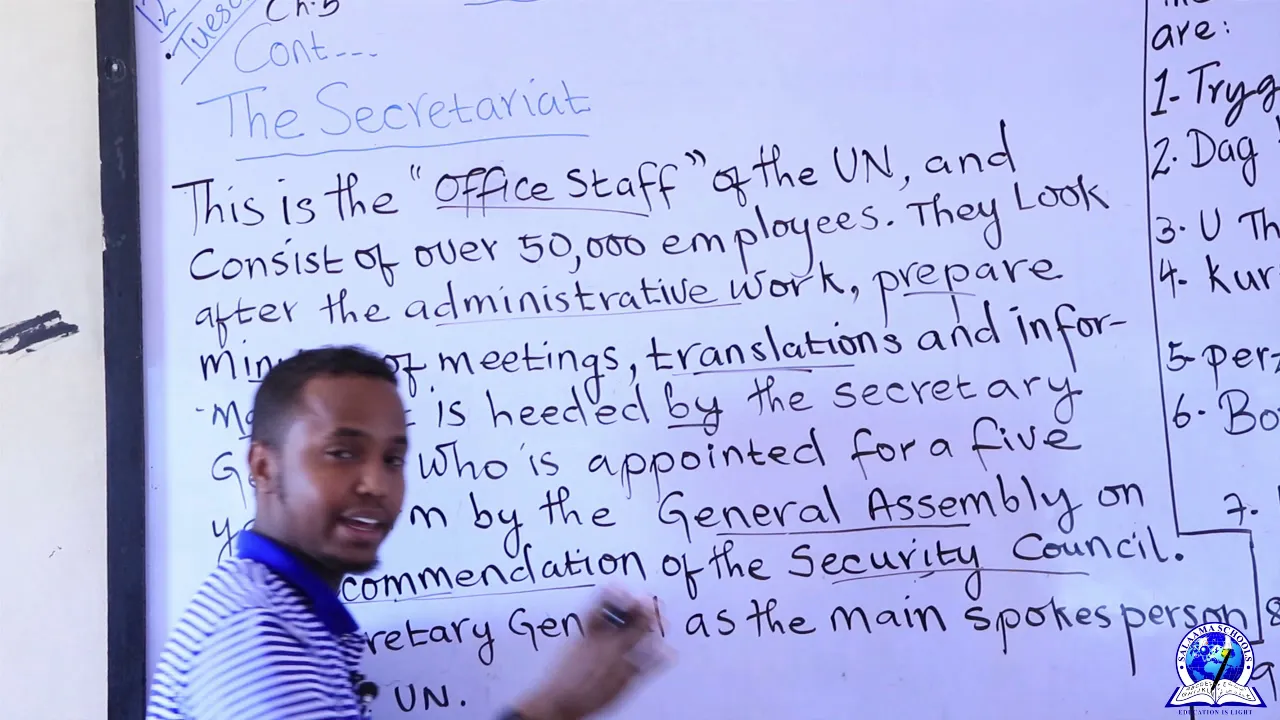 Tues
Ch.5
Cont---
The Secretariat
This is the "Office Staff" of the UN, and
Consist of over 50,000 employees. They Look
after the administrative work, prepare
of meetings, translations and infor-
is heeded by the secretary
who is appointed for a five
by the General Assembly on
commendation of the Security Council.
retary General as the main spokesperson
UN.
are:
1- Tryg
2. Dag
3. U Th
4. Kur
5- perz
6. Bo
7.
SALAAMA SCHOOLS
EDUCATION IS LIGHT